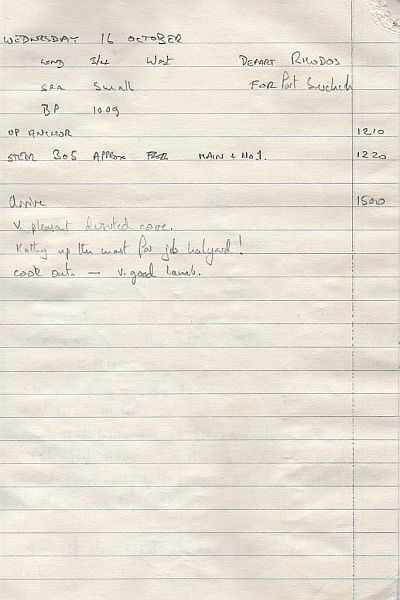 WEDNESDAY 16 OCTOBER
WIND 3/4 West DEPART RHODOS
sea Small FOR Port
BP 1009
UP ANCHOR 1210
STEER 305 APPROX FOR MAIN + No 1. 1220
Arrive 1500
V. pleasant cove.
Kathy up the mast for jib halyard!
cook out. — v. good lamb.